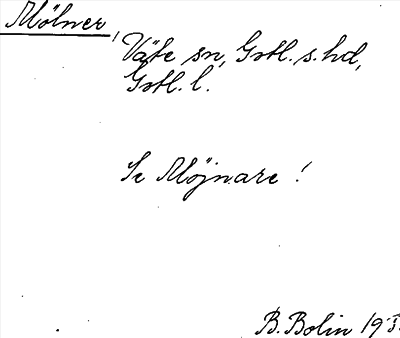 Mölner,
Väte sn, Gotl. s. hd,
Gotl. l.
Se Möjnare !
B. Bolin